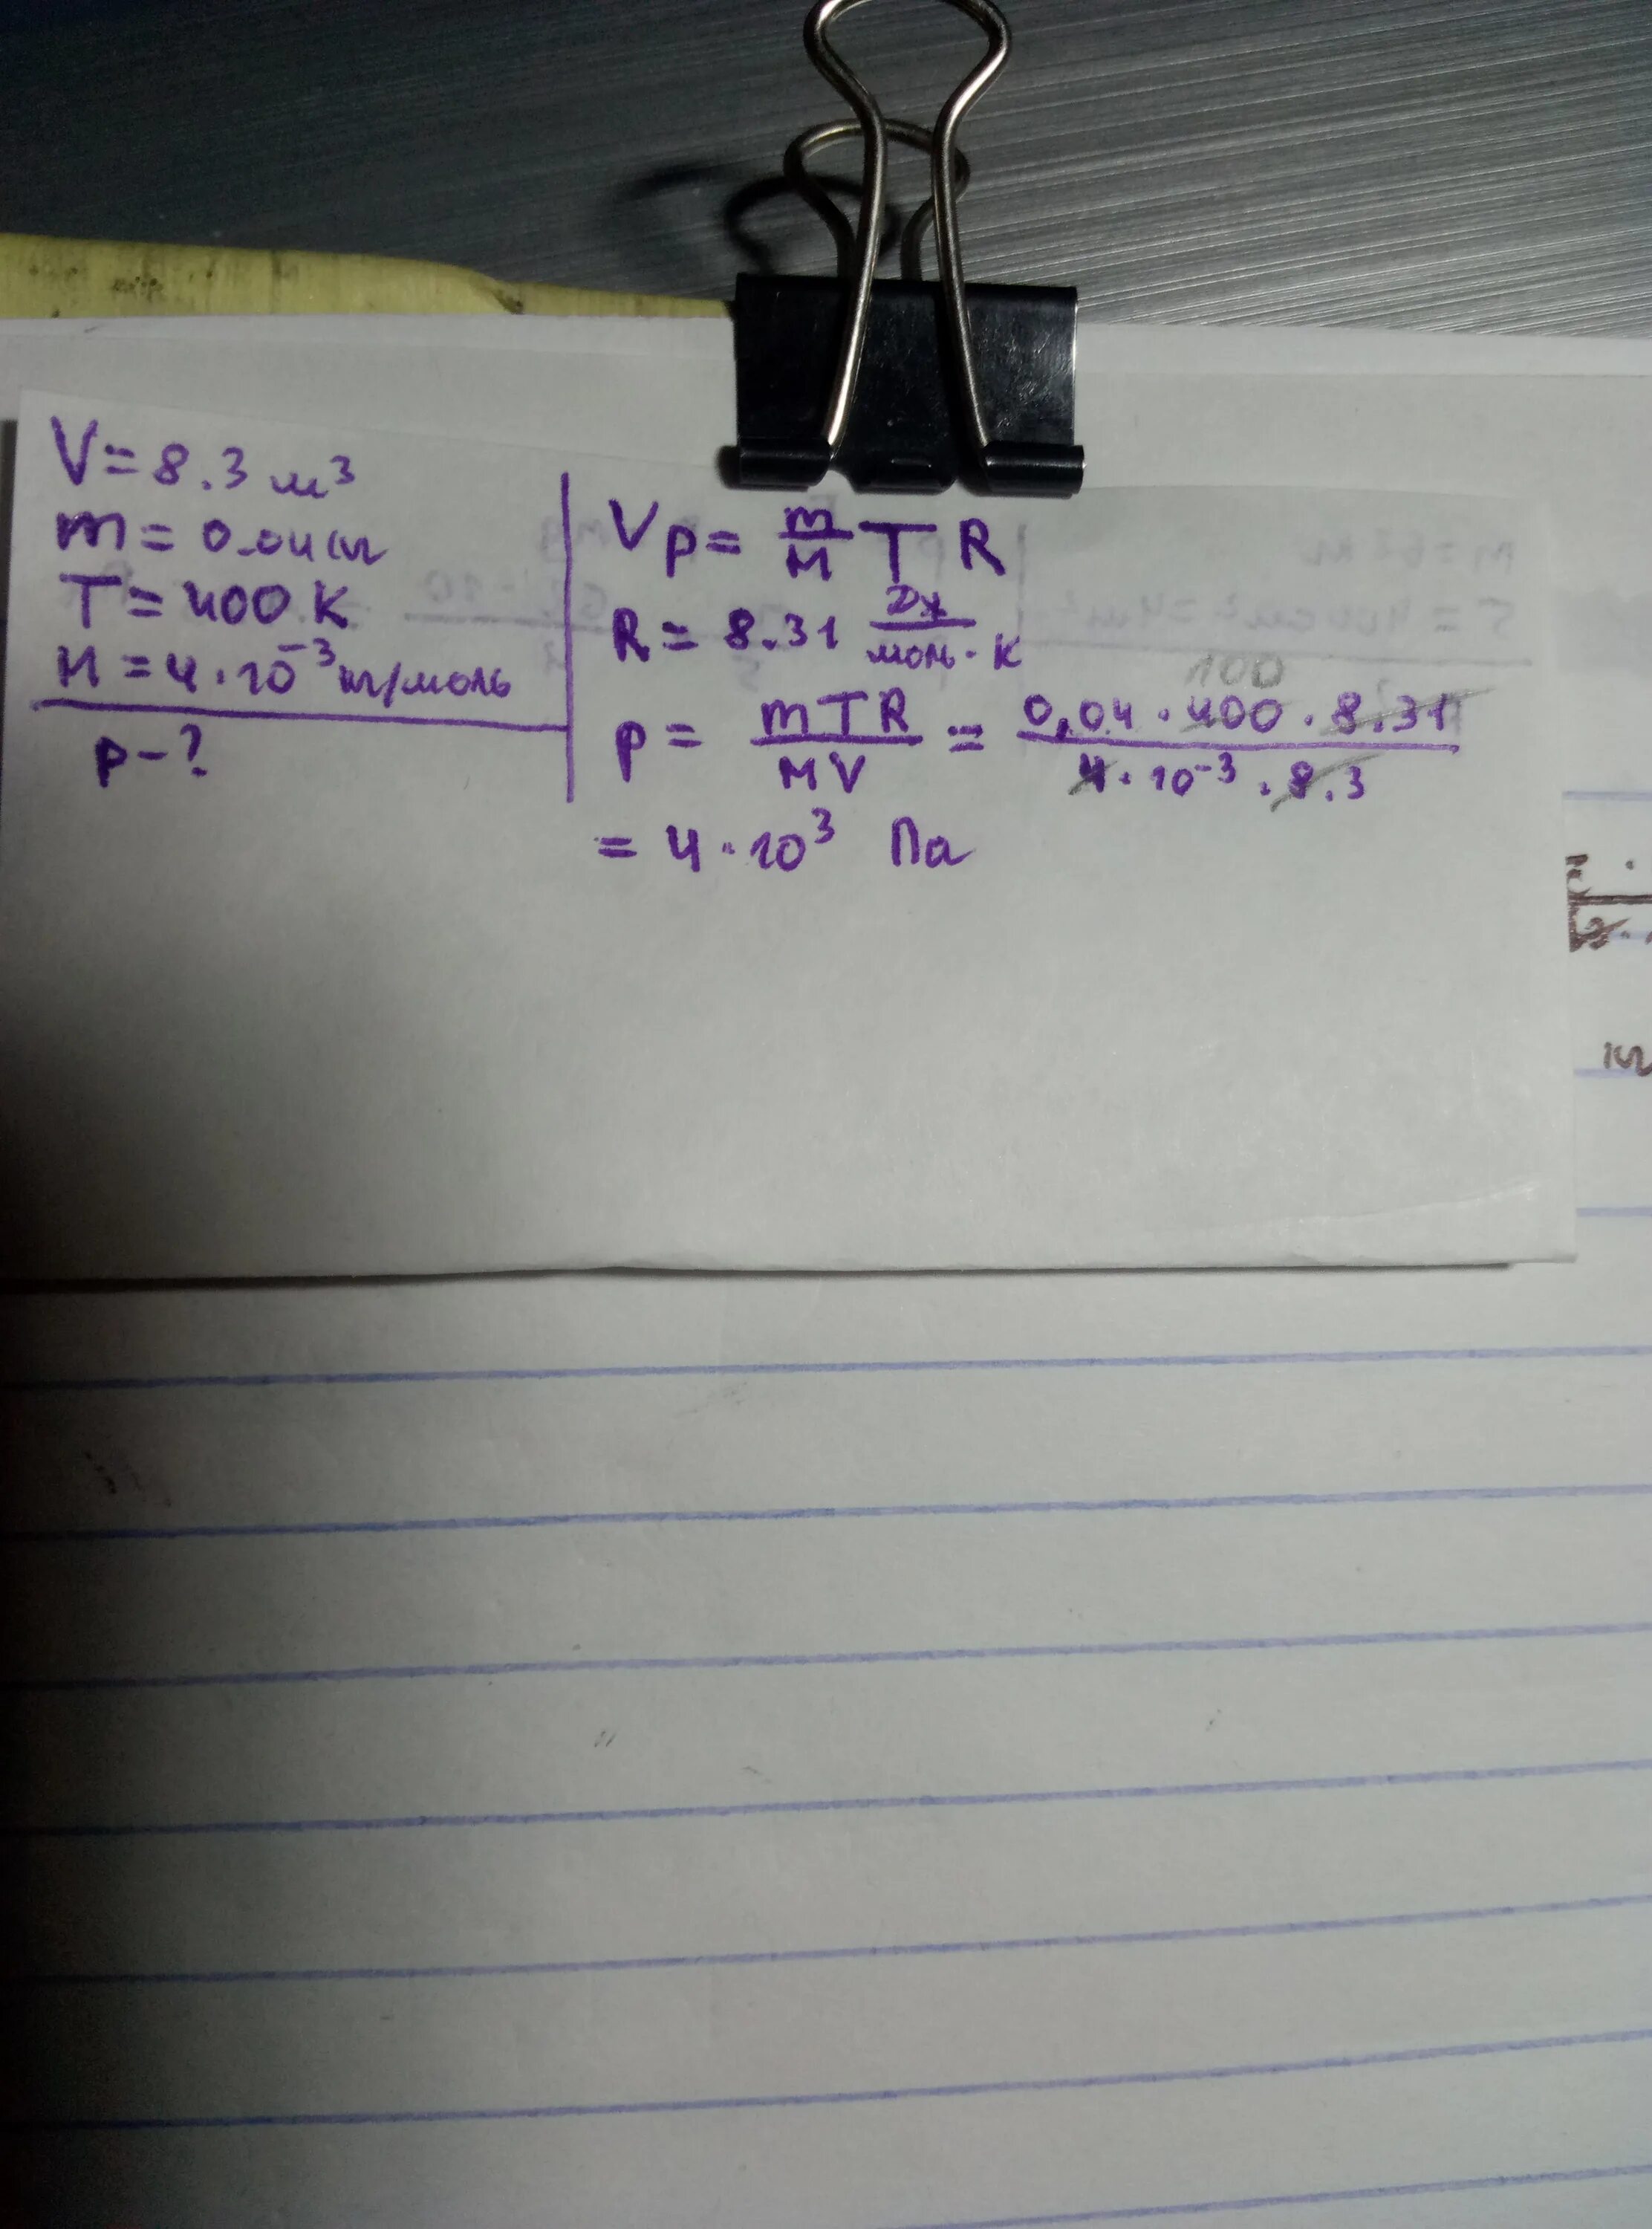 V = 8.3 м³
m = 0.04 кг
T = 400 K
M = 4 · 10⁻³ кг/моль
p - ?
Vp = m/M T R
R = 8.31 Дж/моль · K
100
p = mTR/MV = 0,04 · 400 · 8.31/4 · 10⁻³ · 8.3
= 4 · 10³ Па
кг